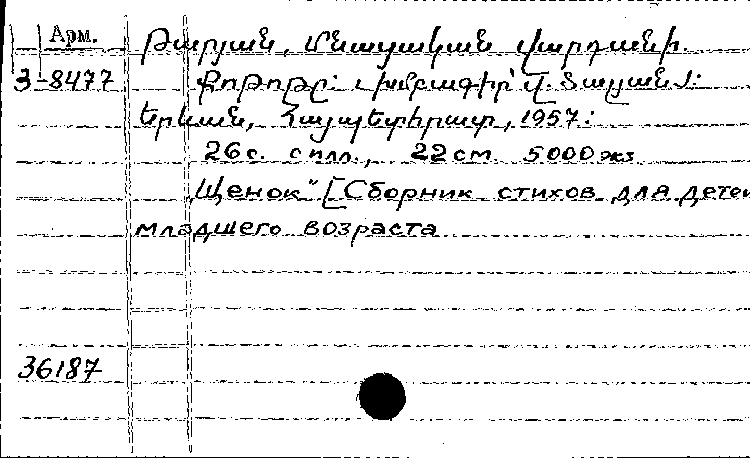 Арм.
Թարյան, Մնացական Վարդանի
3-8477 Քոթոթը: [Խմբագիր՝ Վ. Տալյան]:
Երևան, Հայպետհրատ, 1957:
26 с. с илл., 22 см 5000 экз
„Щенок" [Сборник стихов для детей
младшего возраста
36187